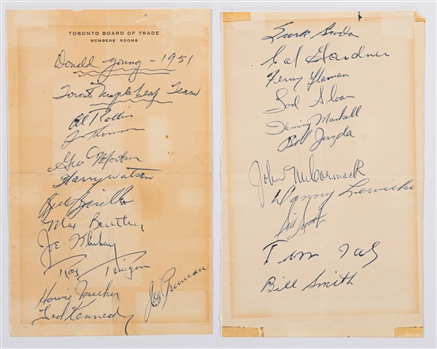 TORONTO BOARD OF TRADE
MEMBERS' ROOMS
Donald Young - 1951
Toronto Maple Leaf Team
Al Rollins
Geo McNab
Harry Watson
Bill
Max Bentley
Joe
Ray Timgren
Howie Meeker
Ted Kennedy
Joe Primeau
Turk Broda
Cal Gardner
Ferny Flaman
Sid Sloan
Fleming Mackell
Bill Juzda
John McCormack
Danny Lewicki
Tim
Bill Smith